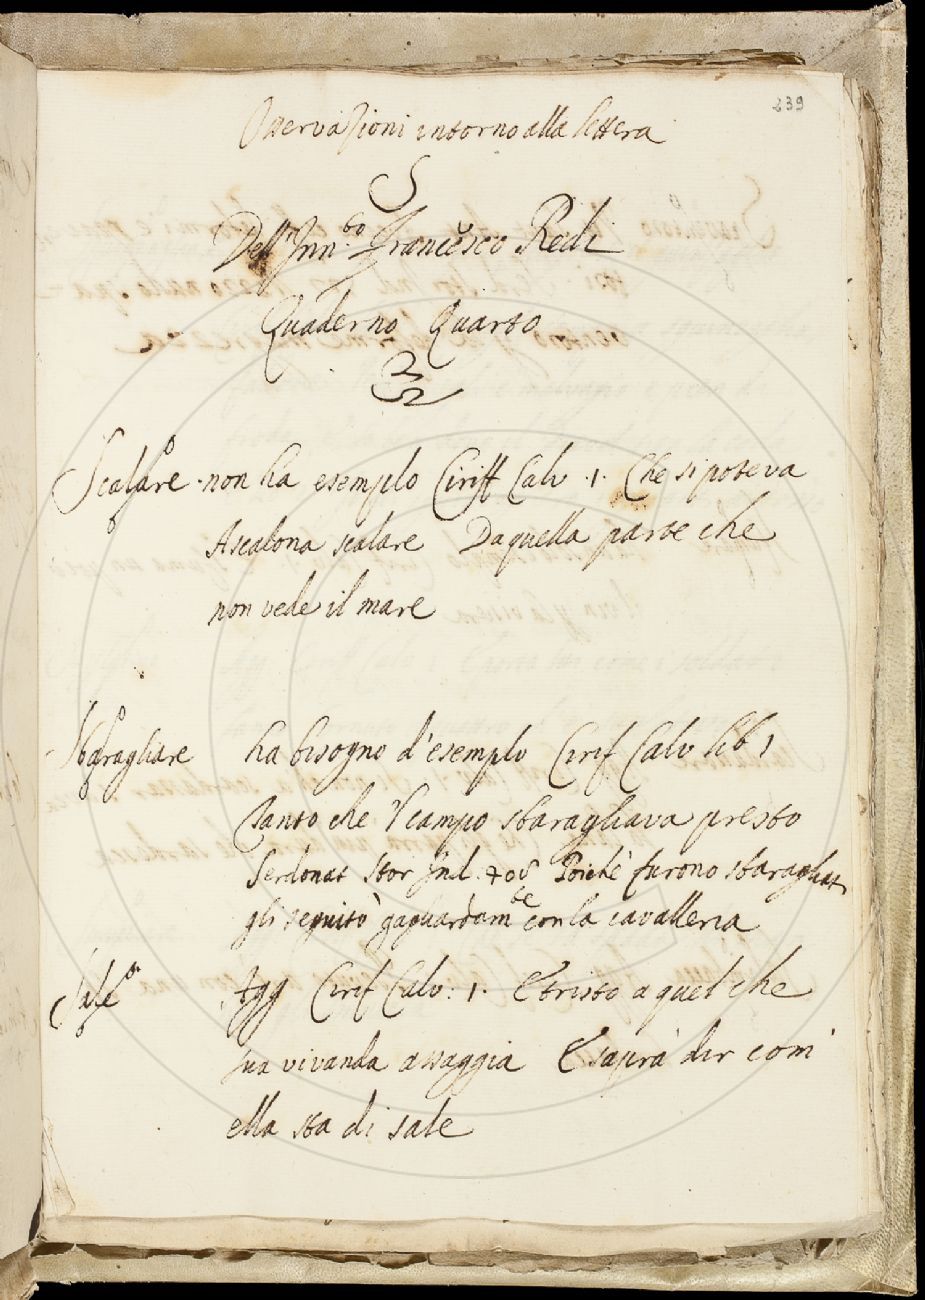 239
Osservazioni intorno alla lettera
S
Dell' Inn.to Francesco Redi
Quaderno Quarto
Scalare non ha esempio Ciriff Calv .1. Che si poteva
Ascalona scalare Da quella parte che
non vede il mare
Sbaragliare ha bisogno d'esempio Cirif Calv lib 1
Tanto che 'l campo sbaragliava presto
Serdonat Stor Ind. 708 Poichè furono sbaragliati
gli seguitò gagliardam.te con la cavalleria
Sale Agg Cirif Calv: 1. E tristo a quel che
sua vivanda assaggia E saprà dir com'
ella sta di sale